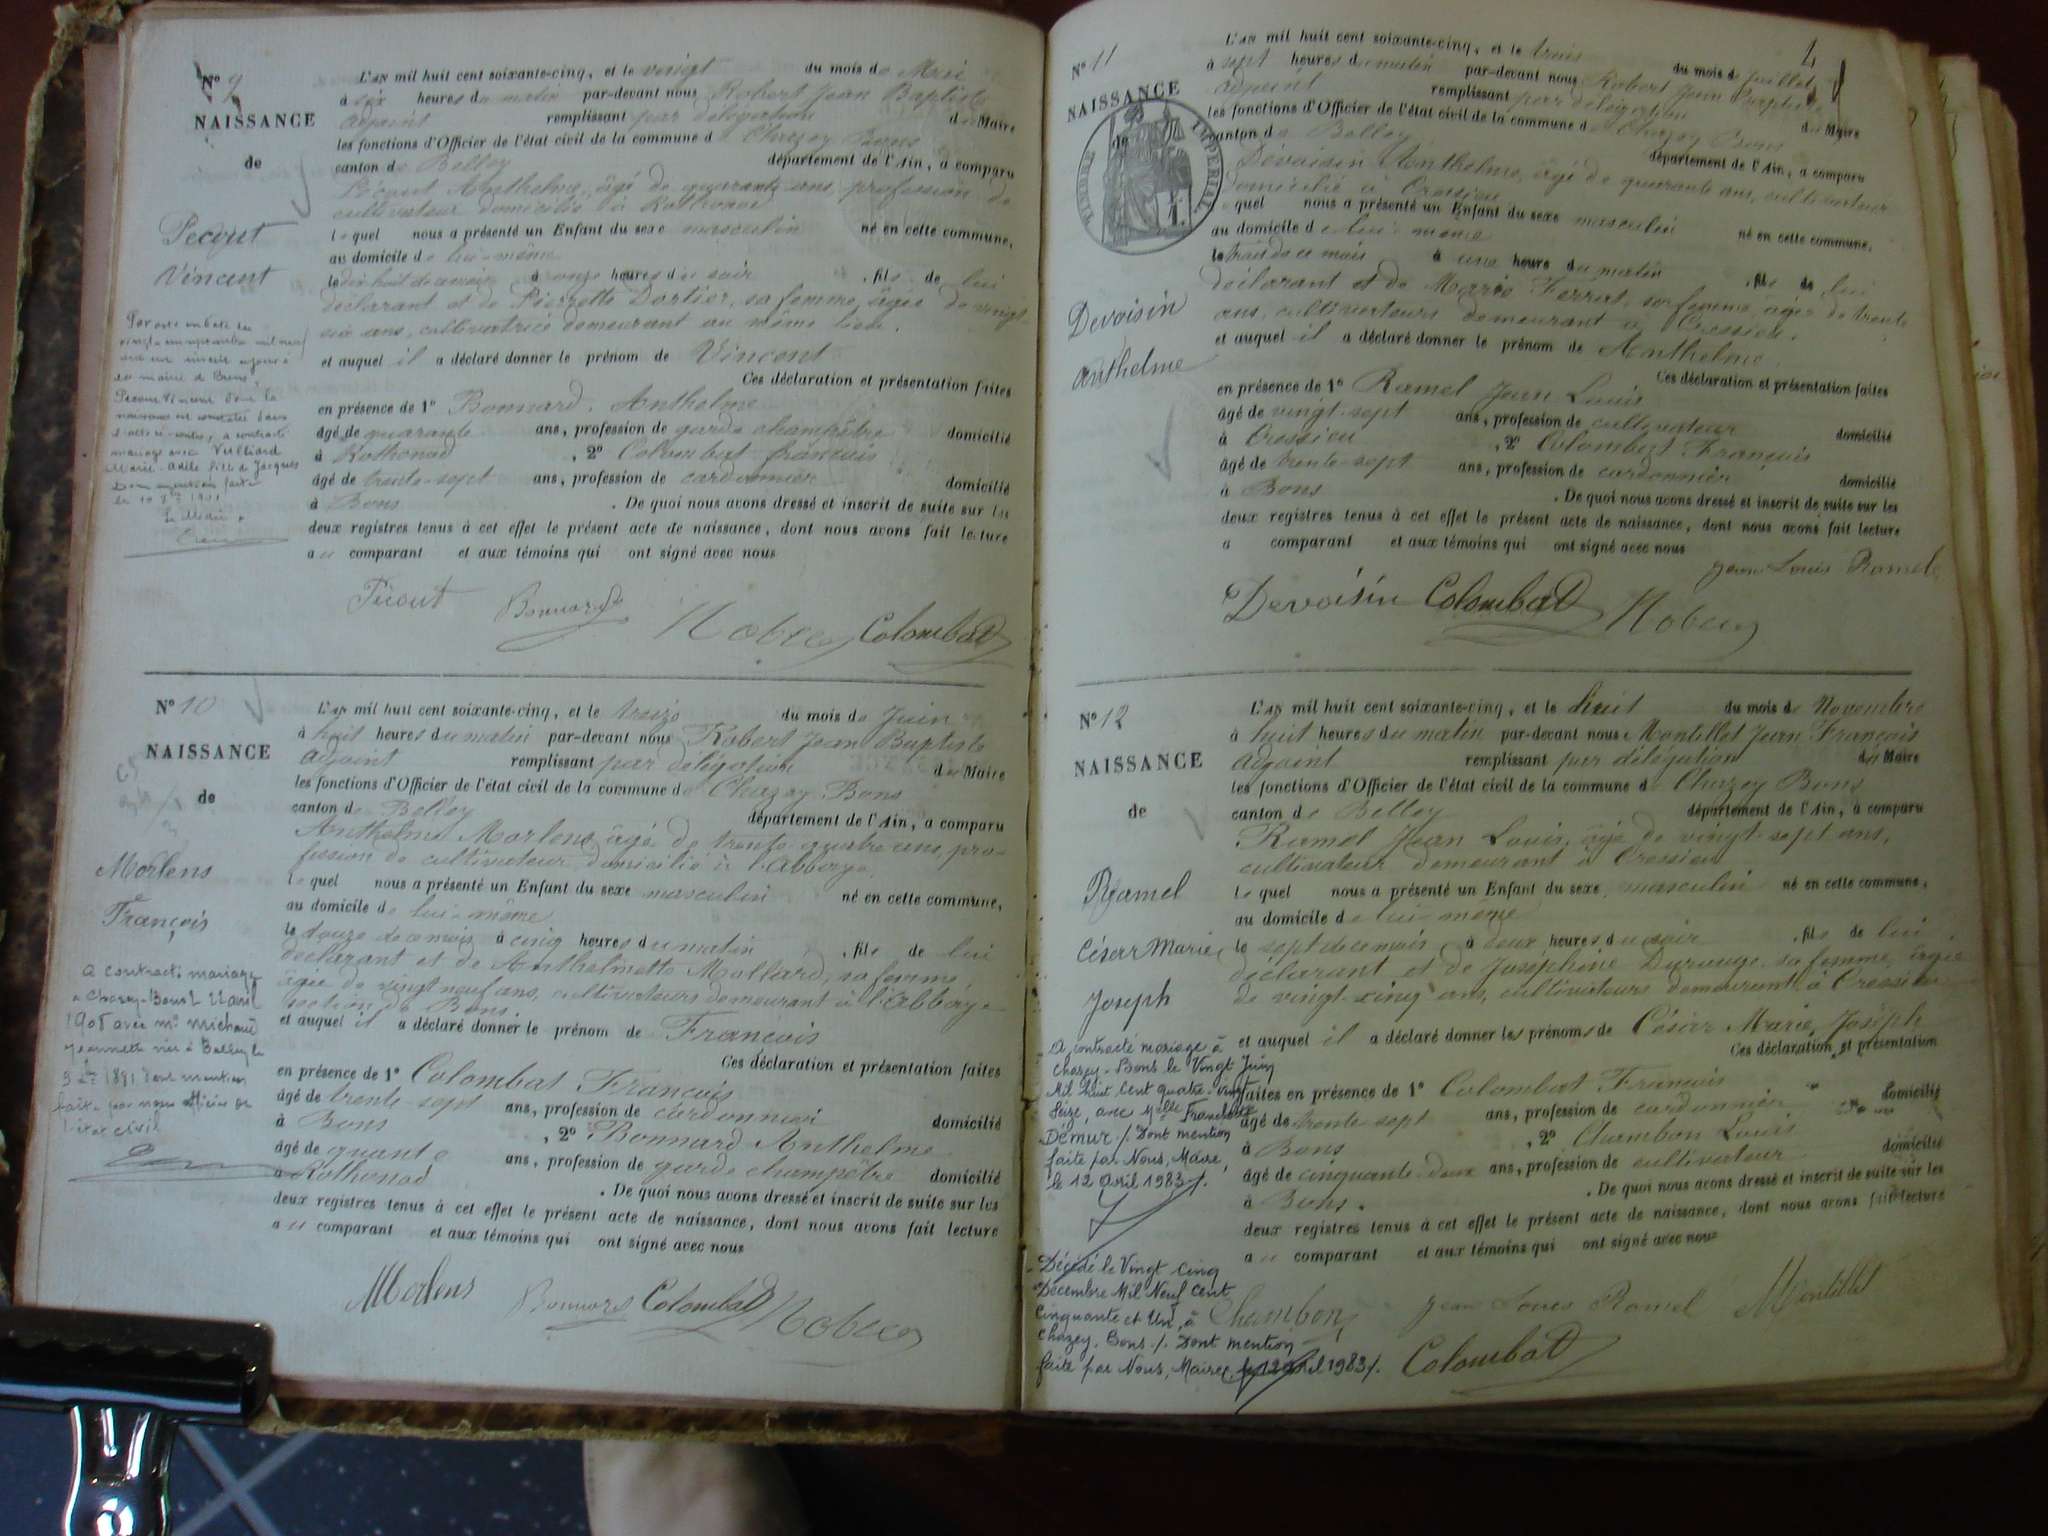 Nº 9
NAISSANCE
de
Pecout
Vincent
L'AN mil huit cent soixante-cinq, et le vingt du mois de Mai
à six heures du matin par-devant nous Robert Jean Baptiste
adjoint remplissant par délégation du Maire
les fonctions d'Officier de l'état civil de la commune de Chazey Bons
canton de Belley département de l'Ain, a comparu
Pécout Anthelme, âgé de quarante ans, profession de
cultivateur domicilié à Rothonod
lequel nous a présenté un Enfant du sexe masculin né en cette commune,
au domicile de lui-même
le dix huit de ce mois à onze heures du soir, fils de lui
déclarant et de Pierrette Dortier, sa femme, âgée de vingt-
six ans, cultivatrice demeurant au même lieu.
et auquel il a déclaré donner le prénom de Vincent
Ces déclaration et présentation faites
en présence de 1º Bonnard Anthelme
âgé de quarante ans, profession de garde champêtre domicilié
à Rothonod, 2º Colombat françois
âgé de trente-sept ans, profession de cordonnier domicilié
à Bons. De quoi nous avons dressé et inscrit de suite sur les
deux registres tenus à cet effet le présent acte de naissance, dont nous avons fait lecture
au comparant et aux témoins qui ont signé avec nous
Pecout Vincent dont la
naissance est constatée dans
l'acte ci-contre, a contracté
mariage avec Vulliard
Marie-Adèle fille de Jacques
Dont mention faite
Le Maire
Pécout Bonnard Robert Colombat
Nº 10
NAISSANCE
de
Morlens
François
L'AN mil huit cent soixante-cinq, et le treize du mois de Juin
à huit heures du matin par-devant nous Robert Jean Baptiste
adjoint remplissant par délégation du Maire
les fonctions d'Officier de l'état civil de la commune de Chazey Bons
canton de Belley département de l'Ain, a comparu
Anthelme Morlens, âgé de trente-quatre ans, pro-
fession de cultivateur domicilié à l'Abbaye
lequel nous a présenté un Enfant du sexe masculin né en cette commune,
au domicile de lui-même
le douze de ce mois à cinq heures du matin, fils de lui
déclarant et de Anthelmette Mollard, sa femme,
âgée de vingt neuf ans, cultivateurs demeurant à l'Abbaye
section de Bons.
et auquel il a déclaré donner le prénom de François
Ces déclaration et présentation faites
en présence de 1º Colombat François
âgé de trente-sept ans, profession de cordonnier domicilié
à Bons, 2º Bonnard Anthelme
âgé de quante ans, profession de garde champêtre domicilié
à Rothonod. De quoi nous avons dressé et inscrit de suite sur les
deux registres tenus à cet effet le présent acte de naissance, dont nous avons fait lecture
au comparant et aux témoins qui ont signé avec nous
a contracté mariage
à Chazey-Bons le 22 avril
1905 avec Mlle Michaud
Jeannette née à Belley le
9 Xbre 1881 dont mention
faite par nous officier de
l'état civil
Morlens Bonnard Colombat Robert
Nº 11
NAISSANCE
de
TIMBRE IMPERIAL
Devoisin
anthelme
4
L'AN mil huit cent soixante-cinq, et le trois du mois de Juillet
à sept heures du matin par-devant nous Robert Jean Baptiste
adjoint remplissant par délégation du Maire
les fonctions d'Officier de l'état civil de la commune de Chazey Bons
canton de Belley département de l'Ain, a comparu
Dévoisin Anthelme, âgé de quarante ans, cultivateur
domicilié à Cressieu
lequel nous a présenté un Enfant du sexe masculin né en cette commune,
au domicile de lui-même
le trois de ce mois à une heure du matin, fils de lui
déclarant et de Marie Ferrat, sa femme, âgée de trente
ans, cultivateurs demeurant à Cressieu.
et auquel il a déclaré donner le prénom de Anthelme
Ces déclaration et présentation faites
en présence de 1º Ramel Jean Louis
âgé de vingt-sept ans, profession de cultivateur domicilié
à Cressieu, 2º Colombat François
âgé de trente-sept ans, profession de cordonnier domicilié
à Bons. De quoi nous avons dressé et inscrit de suite sur les
deux registres tenus à cet effet le présent acte de naissance, dont nous avons fait lecture
a comparant et aux témoins qui ont signé avec nous
Jean Louis Ramel
Devoisin Colombat Robert
Nº 12
NAISSANCE
de
Ramel
César Marie
Joseph
L'AN mil huit cent soixante-cinq, et le huit du mois de Novembre
à huit heures du matin par-devant nous Montillet Jean François
adjoint remplissant par délégation du Maire
les fonctions d'Officier de l'état civil de la commune de Chazey Bons
canton de Belley département de l'Ain, a comparu
Ramel Jean Louis, âgé de vingt-sept ans,
cultivateur demeurant à Cressieu
lequel nous a présenté un Enfant du sexe masculin né en cette commune,
au domicile de lui-même
le sept de ce mois à deux heures du soir, fils de lui
déclarant et de Joséphine sa femme, âgée
de vingt-cinq ans, cultivateurs demeurant à Cressieu
et auquel il a déclaré donner les prénoms de César Marie Joseph
Ces déclaration et présentation
faites en présence de 1º Colombat François
âgé de trente-sept ans, profession de cordonnier domicilié
à Bons, 2º Chambon Louis
âgé de cinquante-deux ans, profession de cultivateur domicilié
à Bons. De quoi nous avons dressé et inscrit de suite sur les
deux registres tenus à cet effet le présent acte de naissance, dont nous avons fait lecture
au comparant et aux témoins qui ont signé avec nous
A contracté mariage à
Chazey-Bons le Vingt Juin
Mil huit Cent quatre-vingt
Seize, avec Melle Francline
Démur./. Dont mention
faite par Nous, Maire,
le 12 avril 1983./.
Décédé le Vingt Cinq
Décembre Mil Neuf Cent
Cinquante et Un, à
Chazey-Bons./. Dont mention
faite par Nous, Maire, le 12 avril 1983./.
Chambon Jean Louis Ramel Montillet
Colombat